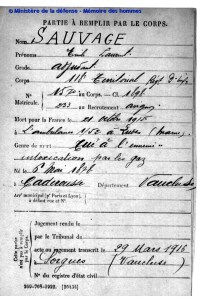 © Ministère de la défense - Mémoire des hommes
PARTIE À REMPLIR PAR LE CORPS.
Nom SAUVAGE
Prénoms Laurent
Grade adjudant
Corps 118 Territorial Régt d'Inf
N° au Corps. — Cl. 1896
Matricule. 931 au Recrutement Avignon
Mort pour la France le 21 octobre 1915
à l'ambulance à (Marne)
Genre de mort Tué à l'ennemi
intoxication par les gaz
Né le 6 Mai 1876
à Caderousse Département Vaucluse
Arrt municipal (pr Paris et Lyon),
à défaut rue et N°.
Jugement rendu le
par le Tribunal de
acte ou jugement transcrit le 29 Mars 1916
à Sorgues (Vaucluse)
N° du registre d'état civil